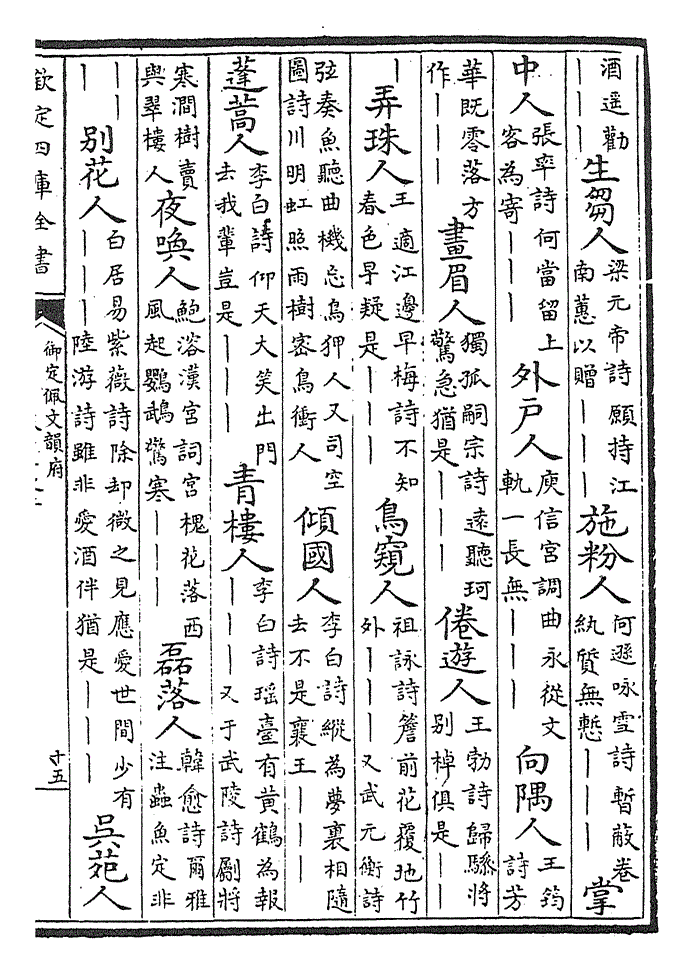 酒遥勸｜｜｜生芻人梁元帝詩願持江南蕙以贈｜｜｜施粉人何遜咏雪詩暫蔽卷紈質無慙｜｜｜掌
中人張率詩何當留上客為寄｜｜｜外戸人庾信宮調曲永從文軌一長無｜｜｜向隅人王筠詩芳
華既零落方作｜｜｜畫眉人獨孤嗣宗詩遠聽珂驚急猶是｜｜｜倦遊人王勃詩歸驂將别棹俱是｜｜
｜弄珠人王適江邊早梅詩不知春色早疑是｜｜｜鳥窺人祖詠詩簷前花覆地竹外｜｜｜又武元衡詩
弦奏魚聽曲機忘鳥狎人又司空圖詩川明虹照雨樹密鳥衝人傾國人李白詩縱為夢裏相隨去不是襄王｜｜｜
蓬蒿人李白詩仰天大笑出門去我輩豈是｜｜｜青樓人李白詩瑶臺有黃鶴為報｜｜｜又于武陵詩劚將
寒澗樹賣與翠樓人夜喚人鮑溶漢宮詞宮槐花落西風起鸚鵡驚寒｜｜｜磊落人韓愈詩爾雅注蟲魚定非
｜｜｜别花人白居易紫薇詩除却微之見應愛世間少有｜｜｜陸游詩雖非愛酒伴猶是｜｜｜吳苑人
欽定四庫全書
御定佩文韻府
十五